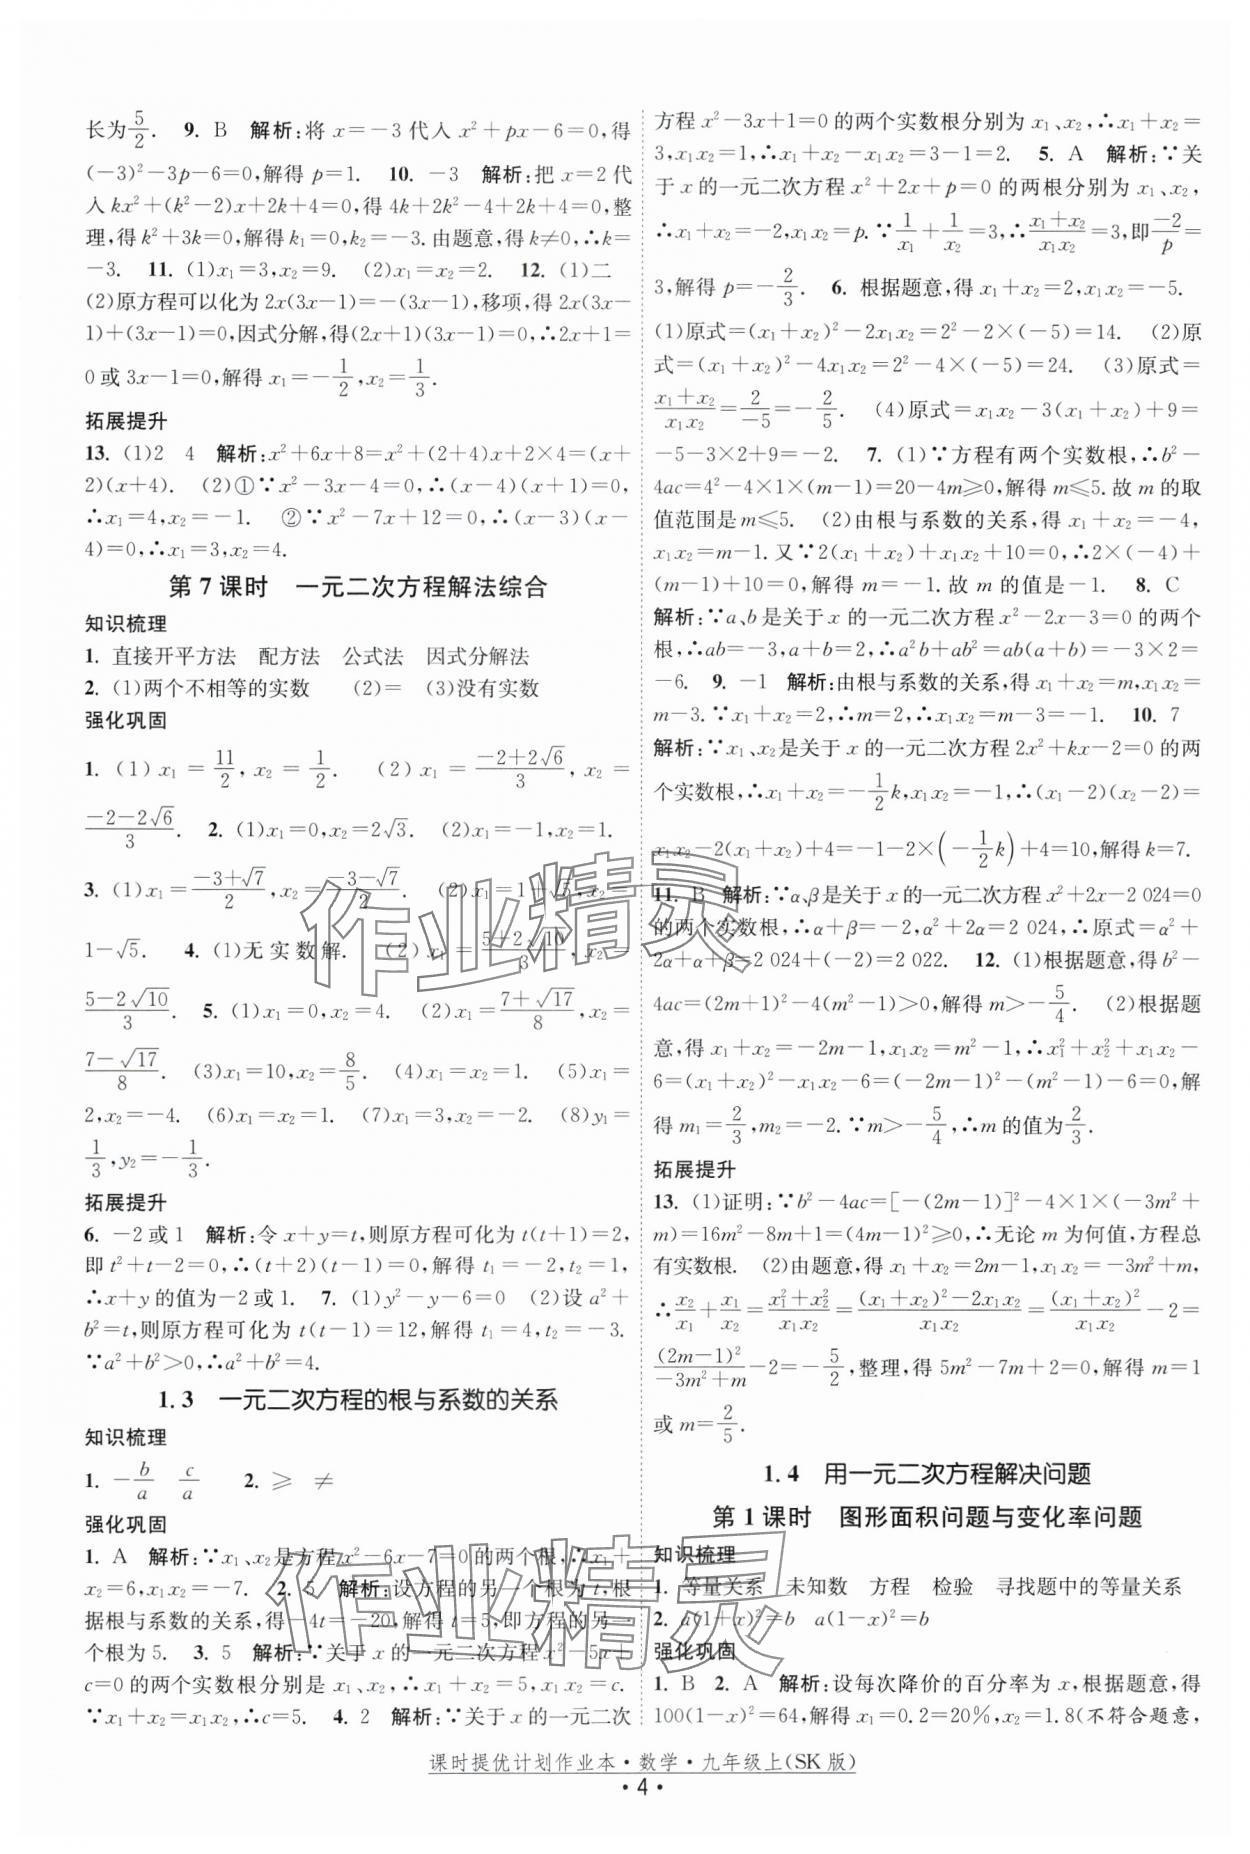 长为5/2. 9. B 解析:将 x=-3代入 x²+px-6=0,得
(-3)²-3p-6=0,解得 p=1. 10. -3 解析:把 x=2代
入 kx²+(k²-2)x+2k+4=0,得 4k+2k²-4+2k+4=0,整
理,得 k²+3k=0,解得 k₁=0,k₂=-3.由题意,得 k≠0,∴k=
-3. 11. (1)x₁=3,x₂=9. (2)x₁=x₂=2. 12. (1)二
(2)原方程可以化为 2x(3x-1)=-(3x-1),移项,得 2x(3x-
1)+(3x-1)=0,因式分解,得(2x+1)(3x-1)=0,∴2x+1=
0 或 3x-1=0,解得 x₁=-1/2,x₂=1/3.
拓展提升
13. (1)2 4 解析:x²+6x+8=x²+(2+4)x+2×4=(x+
2)(x+4). (2)①∵x²-3x-4=0,∴(x-4)(x+1)=0,
∴x₁=4,x₂=-1. ②∵x²-7x+12=0,∴(x-3)(x-
4)=0,∴x₁=3,x₂=4.
第 7 课时 一元二次方程解法综合
知识梳理
1. 直接开平方法 配方法 公式法 因式分解法
2. (1)两个不相等的实数 (2)= (3)没有实数
强化巩固
1. (1) x₁=11/2, x₂=1/2. (2) x₁=(-2+2√6)/3, x₂=
(-2-2√6)/3. 2. (1)x₁=0,x₂=2√3. (2)x₁=-1,x₂=1.
3. (1)x₁=(-3+√7)/2,x₂=(-3-√7)/2. (2)x₁=1+√5,x₂=
1-√5. 4. (1)无实数解. (2)x₁=(5+2√10)/3,x₂=
(5-2√10)/3. 5. (1)x₁=0,x₂=4. (2)x₁=(7+√17)/8,x₂=
(7-√17)/8. (3)x₁=10,x₂=8/5. (4)x₁=x₂=1. (5)x₁=
2,x₂=-4. (6)x₁=x₂=1. (7)x₁=3,x₂=-2. (8)y₁=
1/3,y₂=-1/3.
拓展提升
6. -2或1 解析:令 x+y=t,则原方程可化为 t(t+1)=2,
即 t²+t-2=0,∴(t+2)(t-1)=0,解得 t₁=-2,t₂=1,
∴x+y 的值为-2 或 1. 7. (1)y²-y-6=0 (2)设 a²+
b²=t,则原方程可化为 t(t-1)=12,解得 t₁=4,t₂=-3.
∵a²+b²>0,∴a²+b²=4.
1.3 一元二次方程的根与系数的关系
知识梳理
1. -b/a c/a 2. ≥ ≠
强化巩固
1. A 解析:∵x₁、x₂是方程x²-6x-7=0的两个根,∴x₁+
x₂=6,x₁x₂=-7. 2. 5 解析:设方程的另一个根为 t,根
据根与系数的关系,得-4t=-20,解得 t=5,即方程的另一
个根为 5. 3. 5 解析:∵关于 x 的一元二次方程 x²-5x+
c=0 的两个实数根分别是 x₁、x₂,∴x₁+x₂=5,x₁x₂=c.
∵x₁+x₂=x₁x₂,∴c=5. 4. 2 解析:∵关于 x 的一元二次
方程 x²-3x+1=0 的两个实数根分别为 x₁、x₂,∴x₁+x₂=
3,x₁x₂=1,∴x₁+x₂-x₁x₂=3-1=2. 5. A 解析:∵关
于 x 的一元二次方程 x²+2x+p=0 的两根分别为 x₁、x₂,
∴x₁+x₂=-2,x₁x₂=p.∵1/x₁+1/x₂=3,∴(x₁+x₂)/(x₁x₂)=3,即-2/p=
3,解得 p=-2/3. 6. 根据题意,得 x₁+x₂=2,x₁x₂=-5.
(1)原式=(x₁+x₂)²-2x₁x₂=2²-2×(-5)=14. (2)原
式=(x₁+x₂)²-4x₁x₂=2²-4×(-5)=24. (3)原式=
(x₁+x₂)/(x₁x₂)=2/-5=-2/5. (4)原式=x₁x₂-3(x₁+x₂)+9=
-5-3×2+9=-2. 7. (1)∵方程有两个实数根,∴b²-
4ac=4²-4×1×(m-1)=20-4m≥0,解得 m≤5.故 m 的取
值范围是m≤5. (2)由根与系数的关系,得 x₁+x₂=-4,
x₁x₂=m-1.又∵2(x₁+x₂)+x₁x₂+10=0,∴2×(-4)+
(m-1)+10=0,解得 m=-1.故 m 的值是-1. 8. C
解析:∵a、b是关于 x 的一元二次方程 x²-2x-3=0 的两个
根,∴ab=-3,a+b=2,∴a²b+ab²=ab(a+b)=-3×2=
-6. 9. -1 解析:由根与系数的关系,得 x₁+x₂=m,x₁x₂=
m-3.∵x₁+x₂=2,∴m=2,∴x₁x₂=m-3=-1. 10. 7
解析:∵x₁、x₂是关于 x 的一元二次方程 2x²+kx-2=0 的两
个实数根,∴x₁+x₂=-1/2k,x₁x₂=-1,∴(x₁-2)(x₂-2)=
x₁x₂-2(x₁+x₂)+4=-1-2×(-1/2k)+4=10,解得 k=7.
11. B 解析:∵α、β是关于 x的一元二次方程 x²+2x-2 024=0
的两个实数根,∴α+β=-2,α²+2α=2 024,∴原式=α²+
2α+α+β=2 024+(-2)=2 022. 12. (1)根据题意,得 b²-
4ac=(2m+1)²-4(m²-1)>0,解得 m>-5/4. (2)根据题
意,得 x₁+x₂=-2m-1,x₁x₂=m²-1,∴x₁²+x₂²+x₁x₂-
6=(x₁+x₂)²-x₁x₂-6=(-2m-1)²-(m²-1)-6=0,解
得 m₁=2/3,m₂=-2.∵m>-5/4,∴m 的值为2/3.
拓展提升
13. (1)证明:∵b²-4ac=[-(2m-1)]²-4×1×(-3m²+
m)=16m²-8m+1=(4m-1)²≥0,∴无论 m 为何值,方程总
有实数根. (2)由题意,得 x₁+x₂=2m-1,x₁x₂=-3m²+m,
∴x₂/x₁+x₁/x₂=(x₁²+x₂²)/(x₁x₂)=((x₁+x₂)²-2x₁x₂)/(x₁x₂)=(x₁+x₂)²/(x₁x₂)-2=
(2m-1)²/(-3m²+m)-2=-5/2,整理,得 5m²-7m+2=0,解得 m=1
或 m=2/5.
1.4 用一元二次方程解决问题
第 1 课时 图形面积问题与变化率问题
知识梳理
1. 等量关系 未知数 方程 检验 寻找题中的等量关系
2. a(1+x)²=b a(1-x)²=b
强化巩固
1. B 2. A 解析:设每次降价的百分率为 x,根据题意,得
100(1-x)²=64,解得 x₁=0.2=20%,x₂=1.8(不符合题意,
课时提优计划作业本·数学·九年级上(SK 版)
· 4 ·
作业精灵
作业精灵